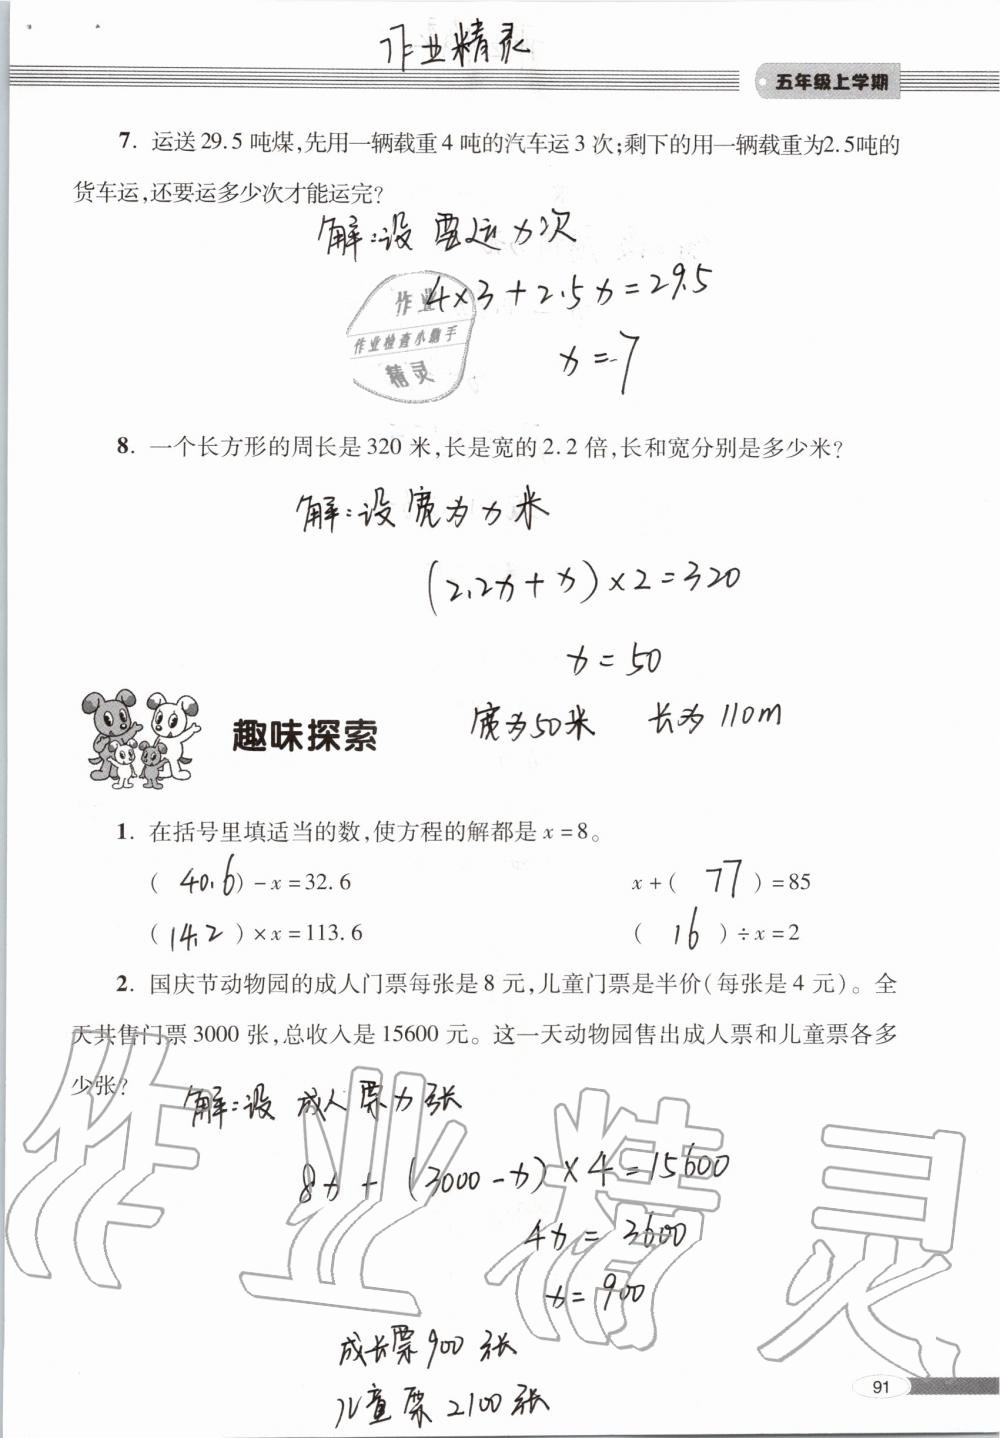 作业精灵
五年级上学期
7. 运送29.5吨煤,先用一辆载重4吨的汽车运3次;剩下的用一辆载重为2.5吨的
货车运,还要运多少次才能运完?
解:设要运x次
4×3+2.5x=29.5
作业
作业检查小助手
精灵
x=7
8. 一个长方形的周长是320米,长是宽的2.2倍,长和宽分别是多少米?
解:设宽为x米
(2.2x+x)×2=320
x=50
宽为50米 长为110m
趣味探索
1. 在括号里填适当的数,使方程的解都是x=8。
(40.6)-x=32.6 x+(77)=85
(14.2)×x=113.6 (16)÷x=2
2. 国庆节动物园的成人门票每张是8元,儿童门票是半价(每张是4元)。全
天共售门票3000张,总收入是15600元。这一天动物园售出成人票和儿童票各多
少张?
解:设成人票x张
8x+(3000-x)×4=15600
4x=3600
x=900
成长票900张
儿童票2100张
作业精灵
91